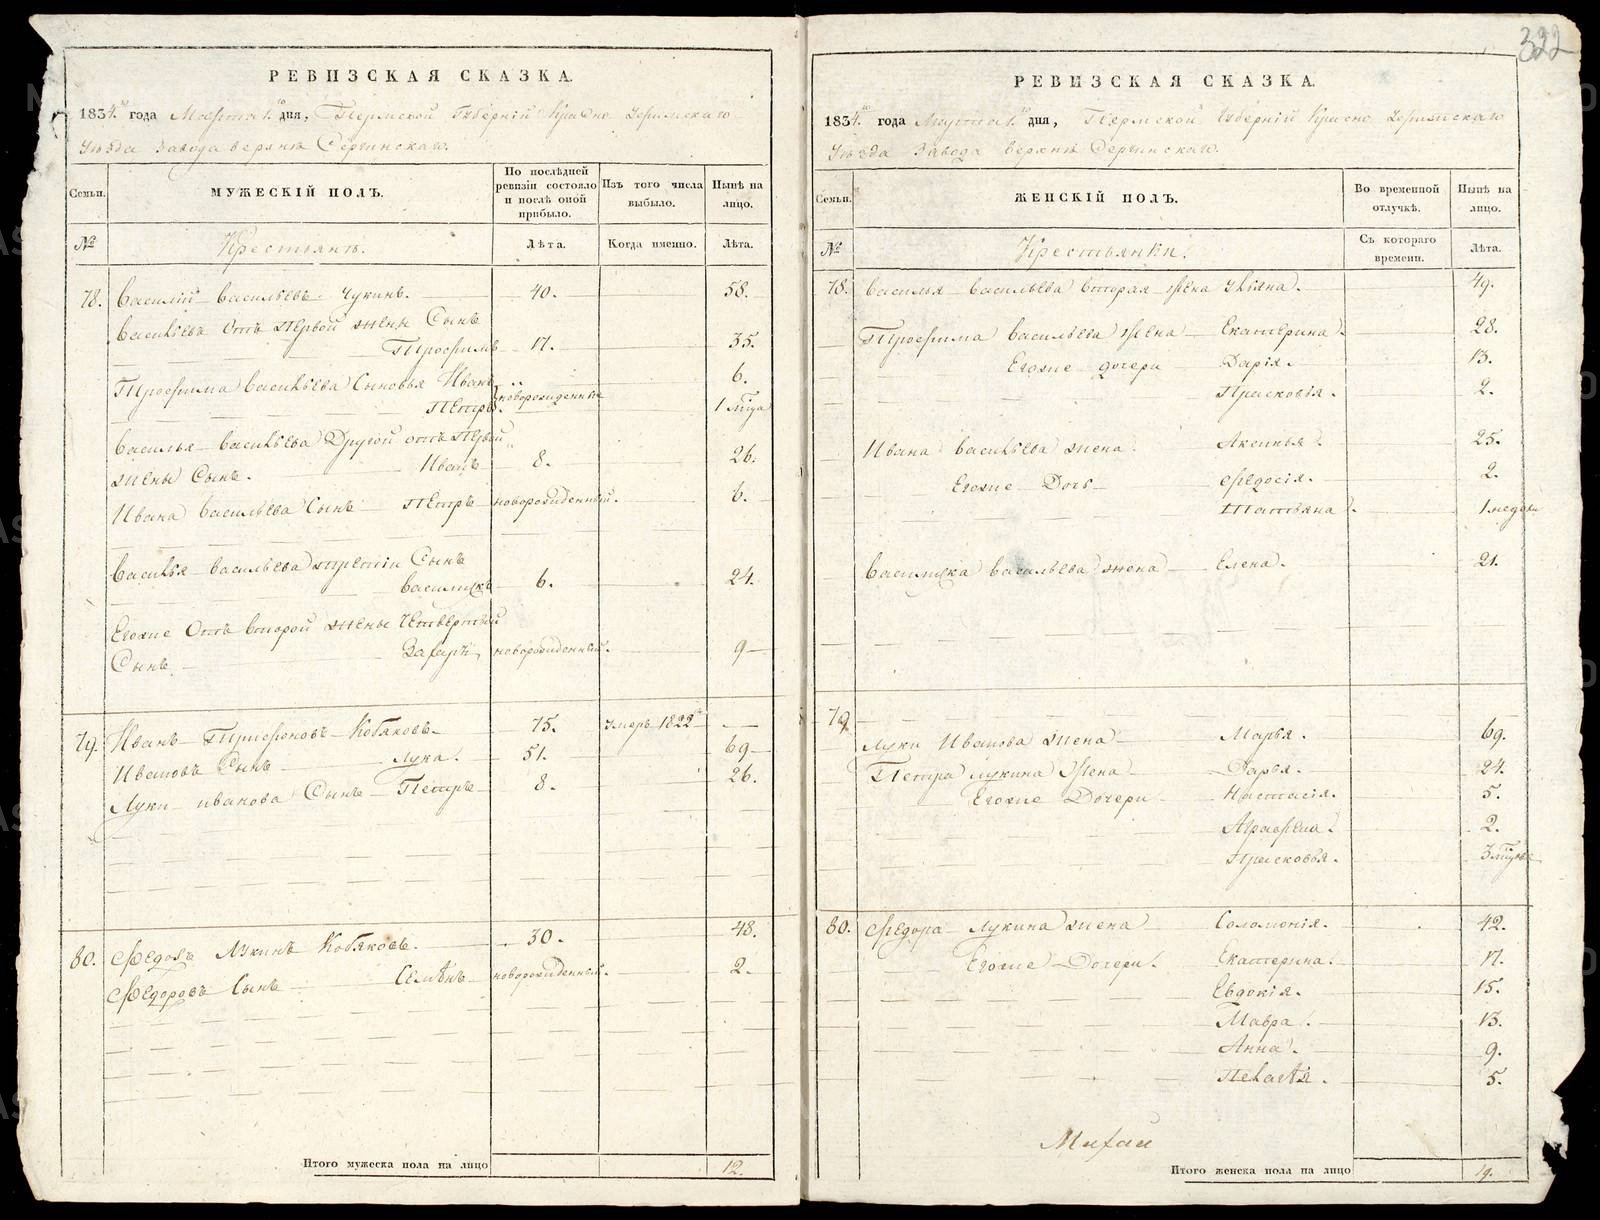 322
РЕВИЗСКАЯ СКАЗКА.
1834го года Марта 1го дня, Пермской Губернiи Красно Уфимскаго
Уѣзда Завода верхнѣ Сергинскаго.
Семьи.
МУЖЕСКIЙ ПОЛЪ.
По послѣдней ревизiи состояло и послѣ оной прибыло.
Изъ того числа выбыло.
Нынѣ на лицо.
№ Крестьянъ. Лѣта. Когда именно. Лѣта.
78. Василiй Васильевъ Чукинъ. 40. 58.
Васильевъ Отъ первой жены Сынъ
Трофимъ 17. 35.
Трофима Васильева Сыновья Иванъ 6.
Петръ новорожденные 1 мѣ
Василья Васильева Другой отъ первой
жены Сынъ. Иванъ 8. 26.
Ивана Васильева Сынъ Петръ новорожденный. 6.
Василья Васильева третiй Сынъ
Василискъ 6. 24.
Егоже Отъ второй жены Четвертый
Сынъ Захаръ новорожденный. 9
79. Иванъ Трифоновъ Кобяковъ 75. умеръ 1822
Ивановъ Сынъ Лука. 51. 69
Луки иванова Сынъ Петръ 8. 26.
80. Федоръ Лукинъ Кобяковъ. 30. 48.
Федоровъ Сынъ Семѣнъ новорожденный. 2.
Итого мужеска пола на лицо 12.
РЕВИЗСКАЯ СКАЗКА.
1834го года Марта 1го дня, Пермской Губернiи Красно Уфимскаго
Уѣзда Завода верхнѣ Сергинскаго.
Семьи.
ЖЕНСКIЙ ПОЛЪ.
Во временной отлучкѣ.
Нынѣ на лицо.
№ Крестьянки. Съ котораго времени. Лѣта.
78. Василья Васильева вторая жена Улiяна. 49.
Трофима Васильева жена Екатерина. 28.
Егоже дочери Дарiя. 13.
Прасковiя. 2.
Ивана Васильева жена Аксинья. 25.
Егоже Дочь Федосiя. 2.
Татьяна. 1 недели
Василиска Васильева жена Елена. 21.
79.
Луки Иванова жена Марья. 69.
Петра Лукина жена Дарья. 24.
Егоже Дочери Настасiя. 5.
Аграфена. 2.
Прасковья. 3
80. Федора Лукина жена Соломонiя. 42.
Егоже Дочери. Екатерина. 17.
Евдокiя. 15.
Мавра. 13.
Анна. 9.
Пелагѣя. 5.
Михаи
Итого женска пола на лицо 19.